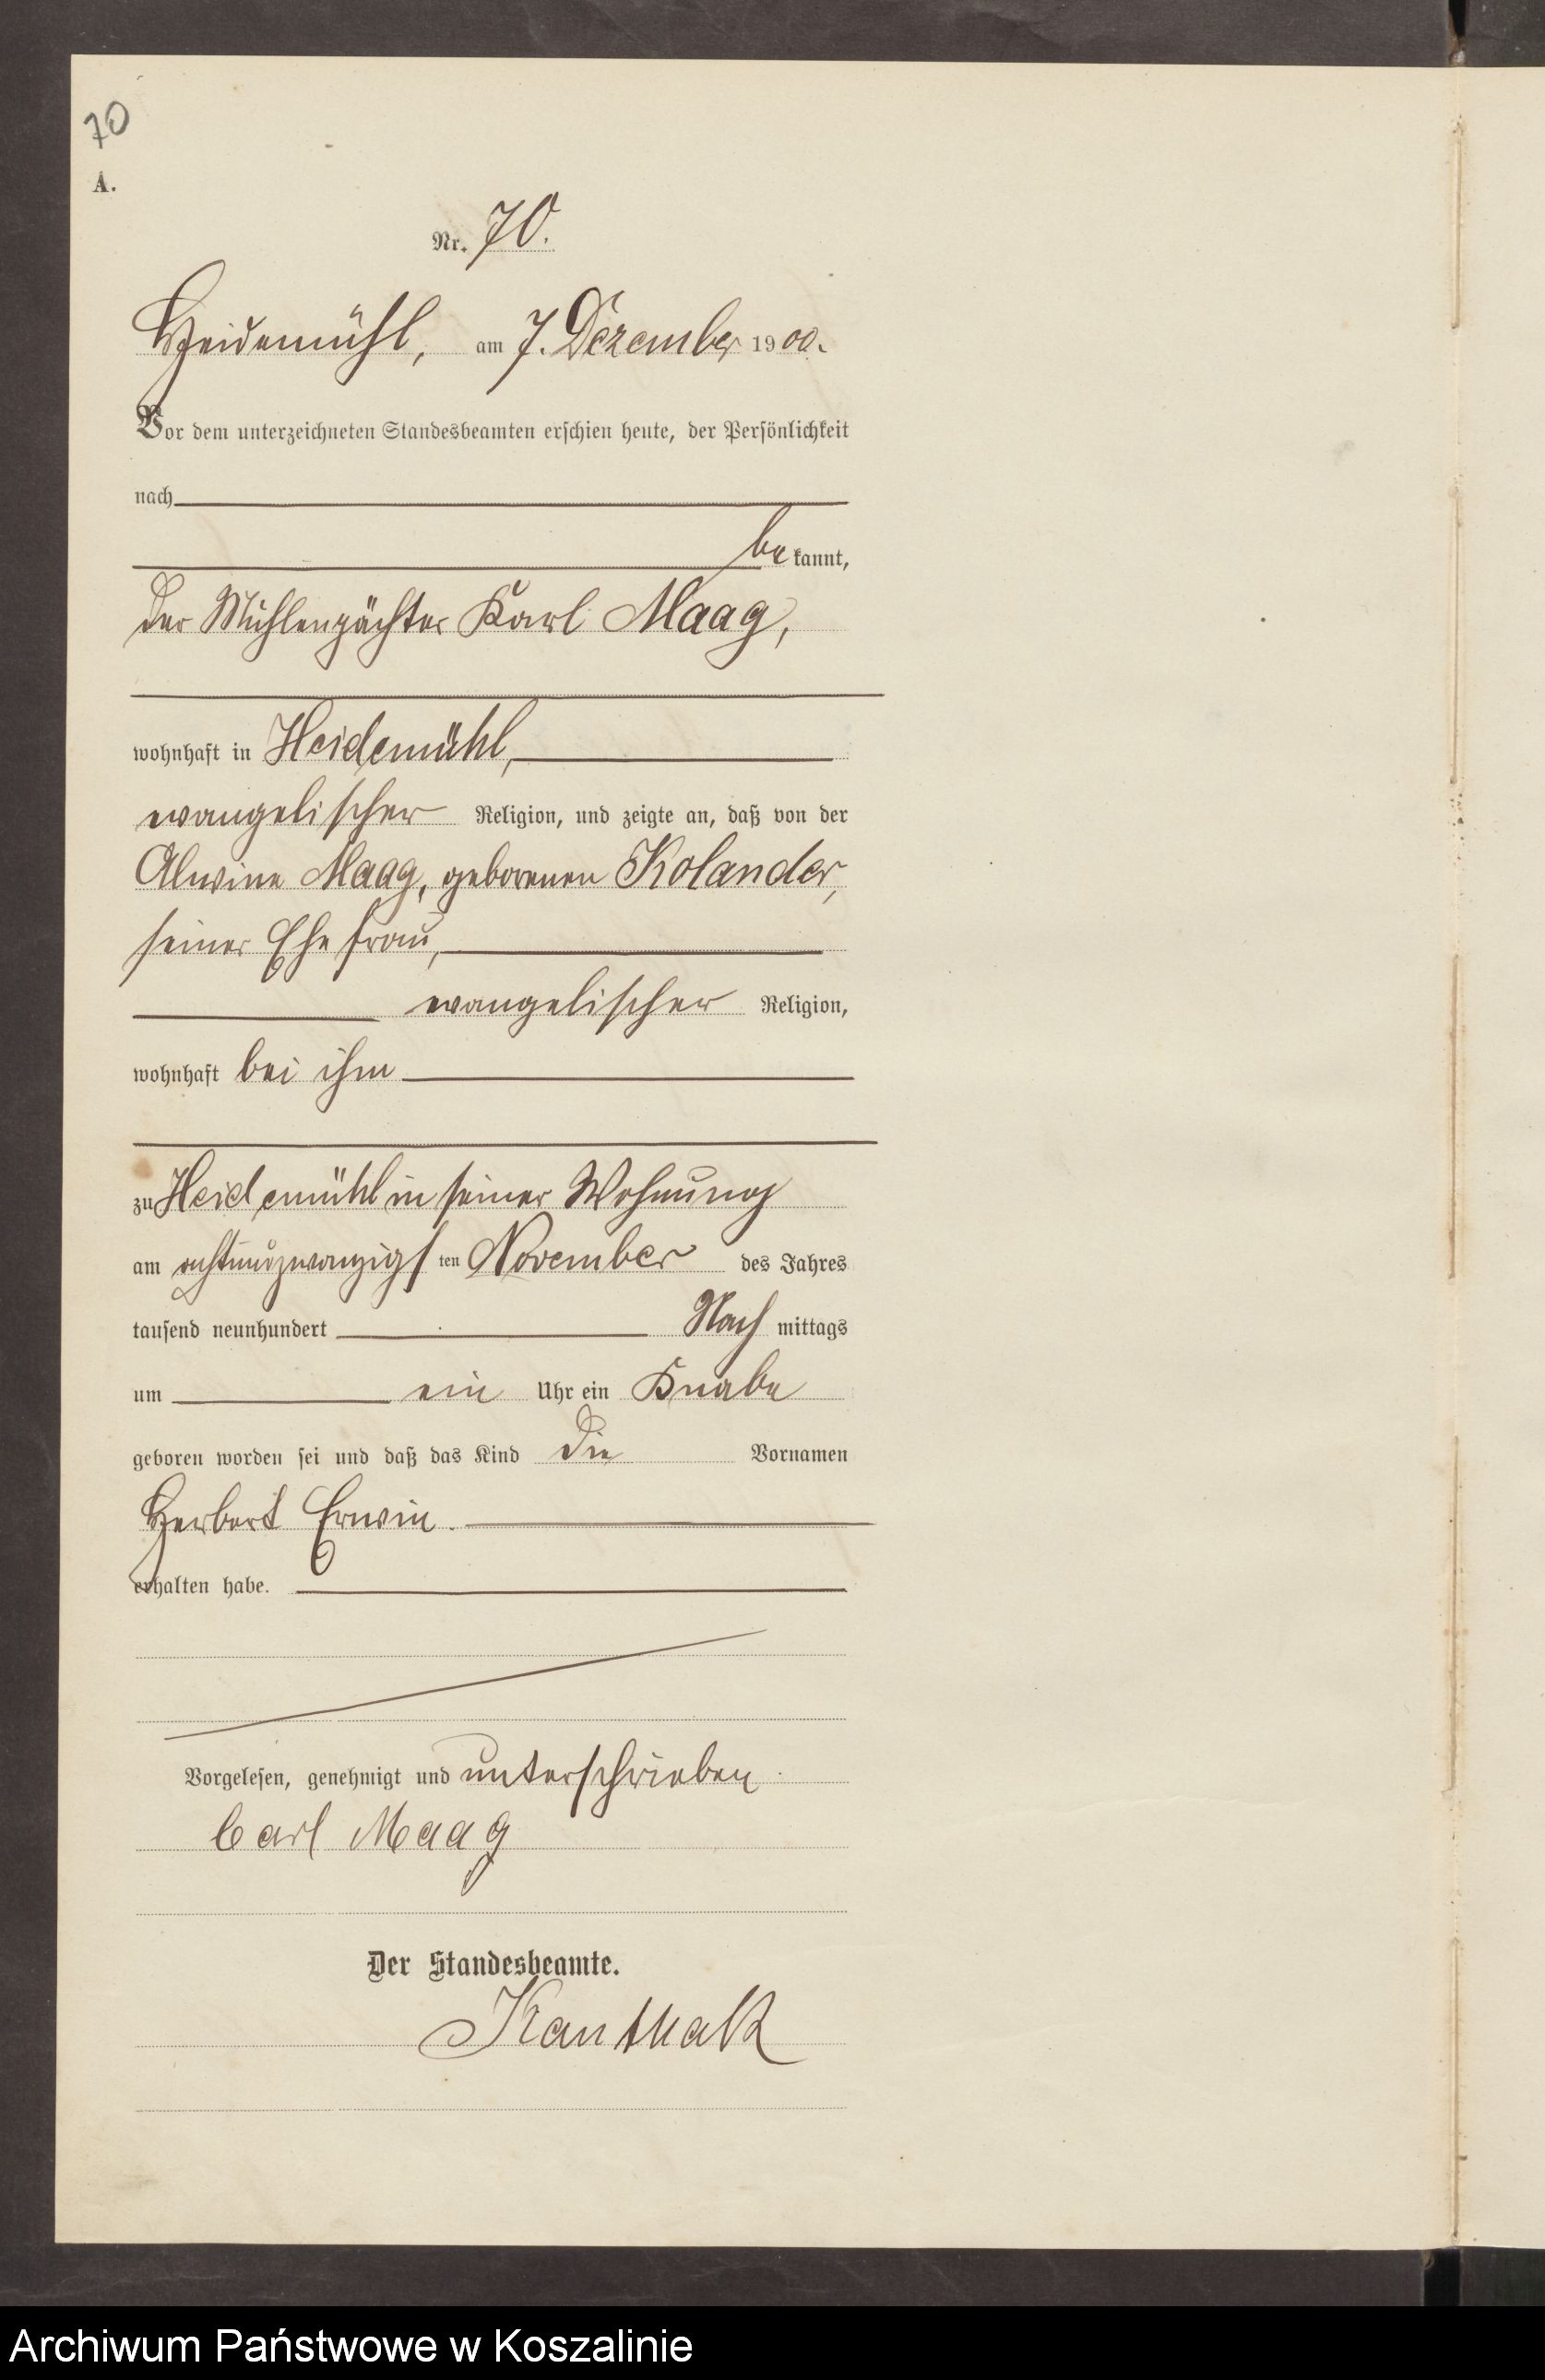 70
A.
Nr. 70.
Heidemühl, am 7. Dezember 1900.
Vor dem unterzeichneten Standesbeamten erschien heute, der Persönlichkeit
nach
bekannt,
der Mühlenpächter Karl Maag,
wohnhaft in Heidemühl,
evangelischer Religion, und zeigte an, daß von der
Alwine Maag, geborenen Kolander,
seiner Ehefrau,
evangelischer Religion,
wohnhaft bei ihm
zu Heidemühl in seiner Wohnung
am achtundzwanzigsten November des Jahres
tausend neunhundert Nachmittags
um ein Uhr ein Knabe
geboren worden sei und daß das Kind die Vornamen
Herbert Erwin.
erhalten habe.
Vorgelesen, genehmigt und unterschrieben.
Carl Maag
Der Standesbeamte.
Kanthak
Archiwum Państwowe w Koszalinie